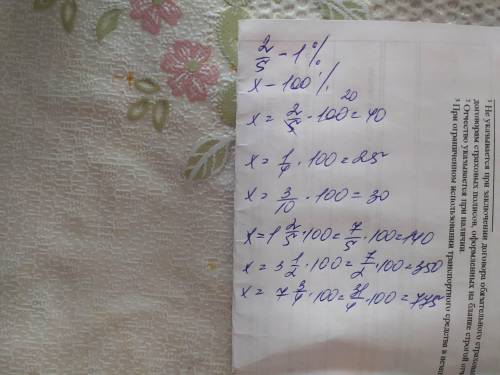 2/5 - 1%
x - 100%
x = 2/5 · 100 20 = 40
x = 1/4 · 100 = 25
x = 3/10 · 100 = 30
x = 1 2/5 · 100 = 7/5 · 100 = 140
x = 3 1/2 · 100 = 7/2 · 100 = 350
x = 7 3/4 · 100 = 31/4 · 100 = 775
¹ Не указывается при заключении договора обязательного страхова
договорам страховых полисов, оформленных на бланке строгой
² Отчество указывается при наличии
³ При ограниченном использовании транспортного средства в